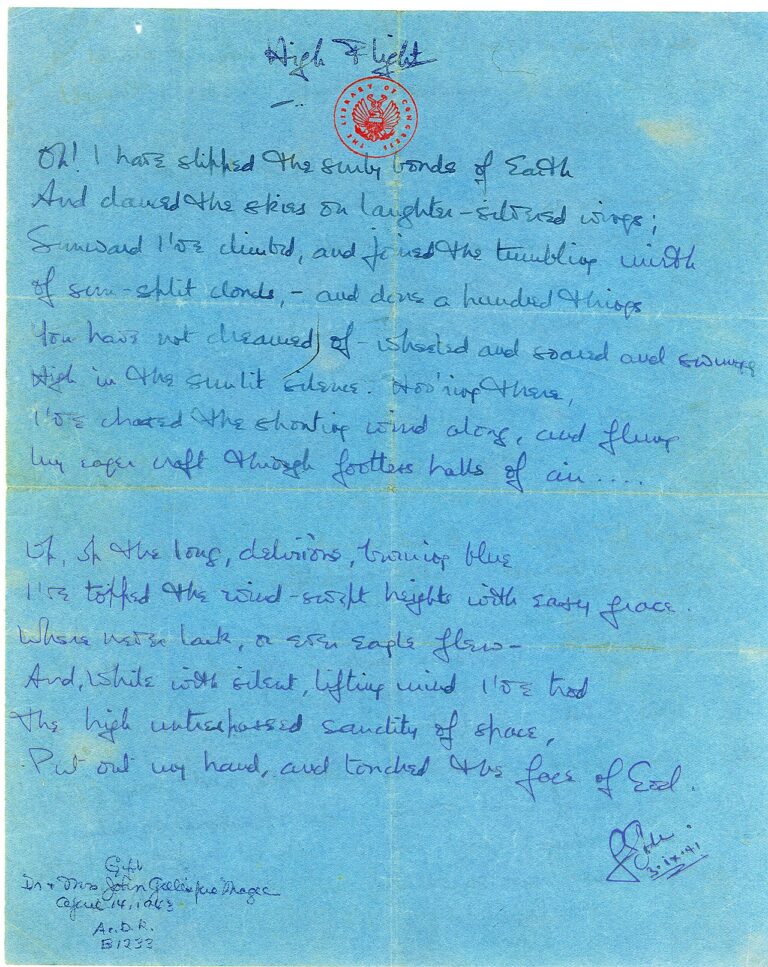 High Flight
THE LIBRARY OF CONGRESS
Oh! I have slipped the surly bonds of Earth
And danced the skies on laughter-silvered wings;
Sunward I've climbed, and joined the tumbling mirth
of sun-split clouds, - and done a hundred things
You have not dreamed of - wheeled and soared and swung
High in the sunlit silence. Hov'ring there,
I've chased the shouting wind along, and flung
My eager craft through footless halls of air.....
Up, up the long, delirious, burning blue
I've topped the wind-swept heights with easy grace.
Where never lark, or even eagle flew -
And, while with silent, lifting mind I've trod
The high untrespassed sanctity of space,
Put out my hand, and touched the face of God.
3.IX.41
Gift
Dr + Mrs John Gillespie Magee
April 14, 1943
Ac. D. R.
B1233